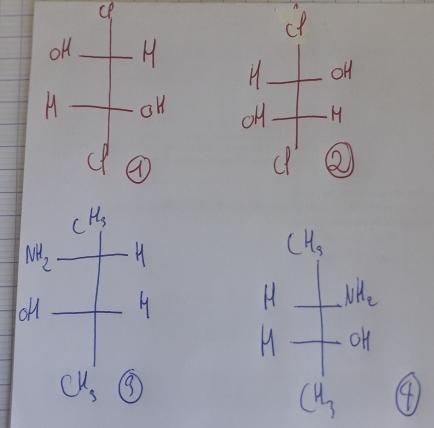 Cl
OH H
H OH
Cl ①
Cl
H OH
OH H
Cl ②
CH₃
NH₂ H
OH H
CH₃ ③
CH₃
H NH₂
H OH
CH₃ ④